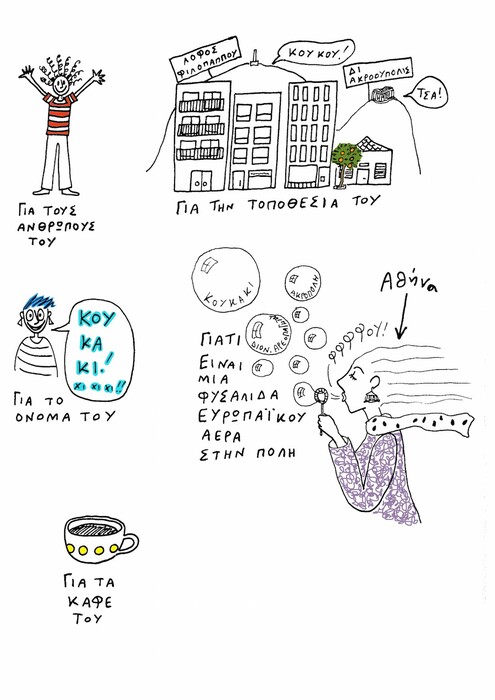 ΛΟΦΟΣ
ΦΙΛΟΠΑΠΠΟΥ
ΚΟΥ ΚΟΥ!
ΔΙ
ΑΚΡΟΟΥΠΟΛΙΣ
ΤΣΑ!
ΓΙΑ ΤΟΥΣ
ΑΝΘΡΩΠΟΥΣ
ΤΟΥ
ΓΙΑ ΤΗΝ ΤΟΠΟΘΕΣΙΑ ΤΟΥ
ΚΟΥ
ΚΑ
ΚΙ.!
ΧΙ ΧΙ ΧΙ!!
ΓΙΑ ΤΟ
ΟΝΟΜΑ ΤΟΥ
ΚΟΥΚΑΚΙ
ΑΚΡΟΠΟΛΗ
ΔΙΟΝ. ΑΡΕΟΠΑΓΙΤΟΥ
Αθήνα
φφφφου!
ΓΙΑΤΙ
ΕΙΝΑΙ
ΜΙΑ
ΦΥΣΑΛΙΔΑ
ΕΥΡΩΠΑΪΚΟΥ
ΑΕΡΑ
ΣΤΗΝ ΠΟΛΗ
ΓΙΑ ΤΑ
ΚΑΦΕ
ΤΟΥ